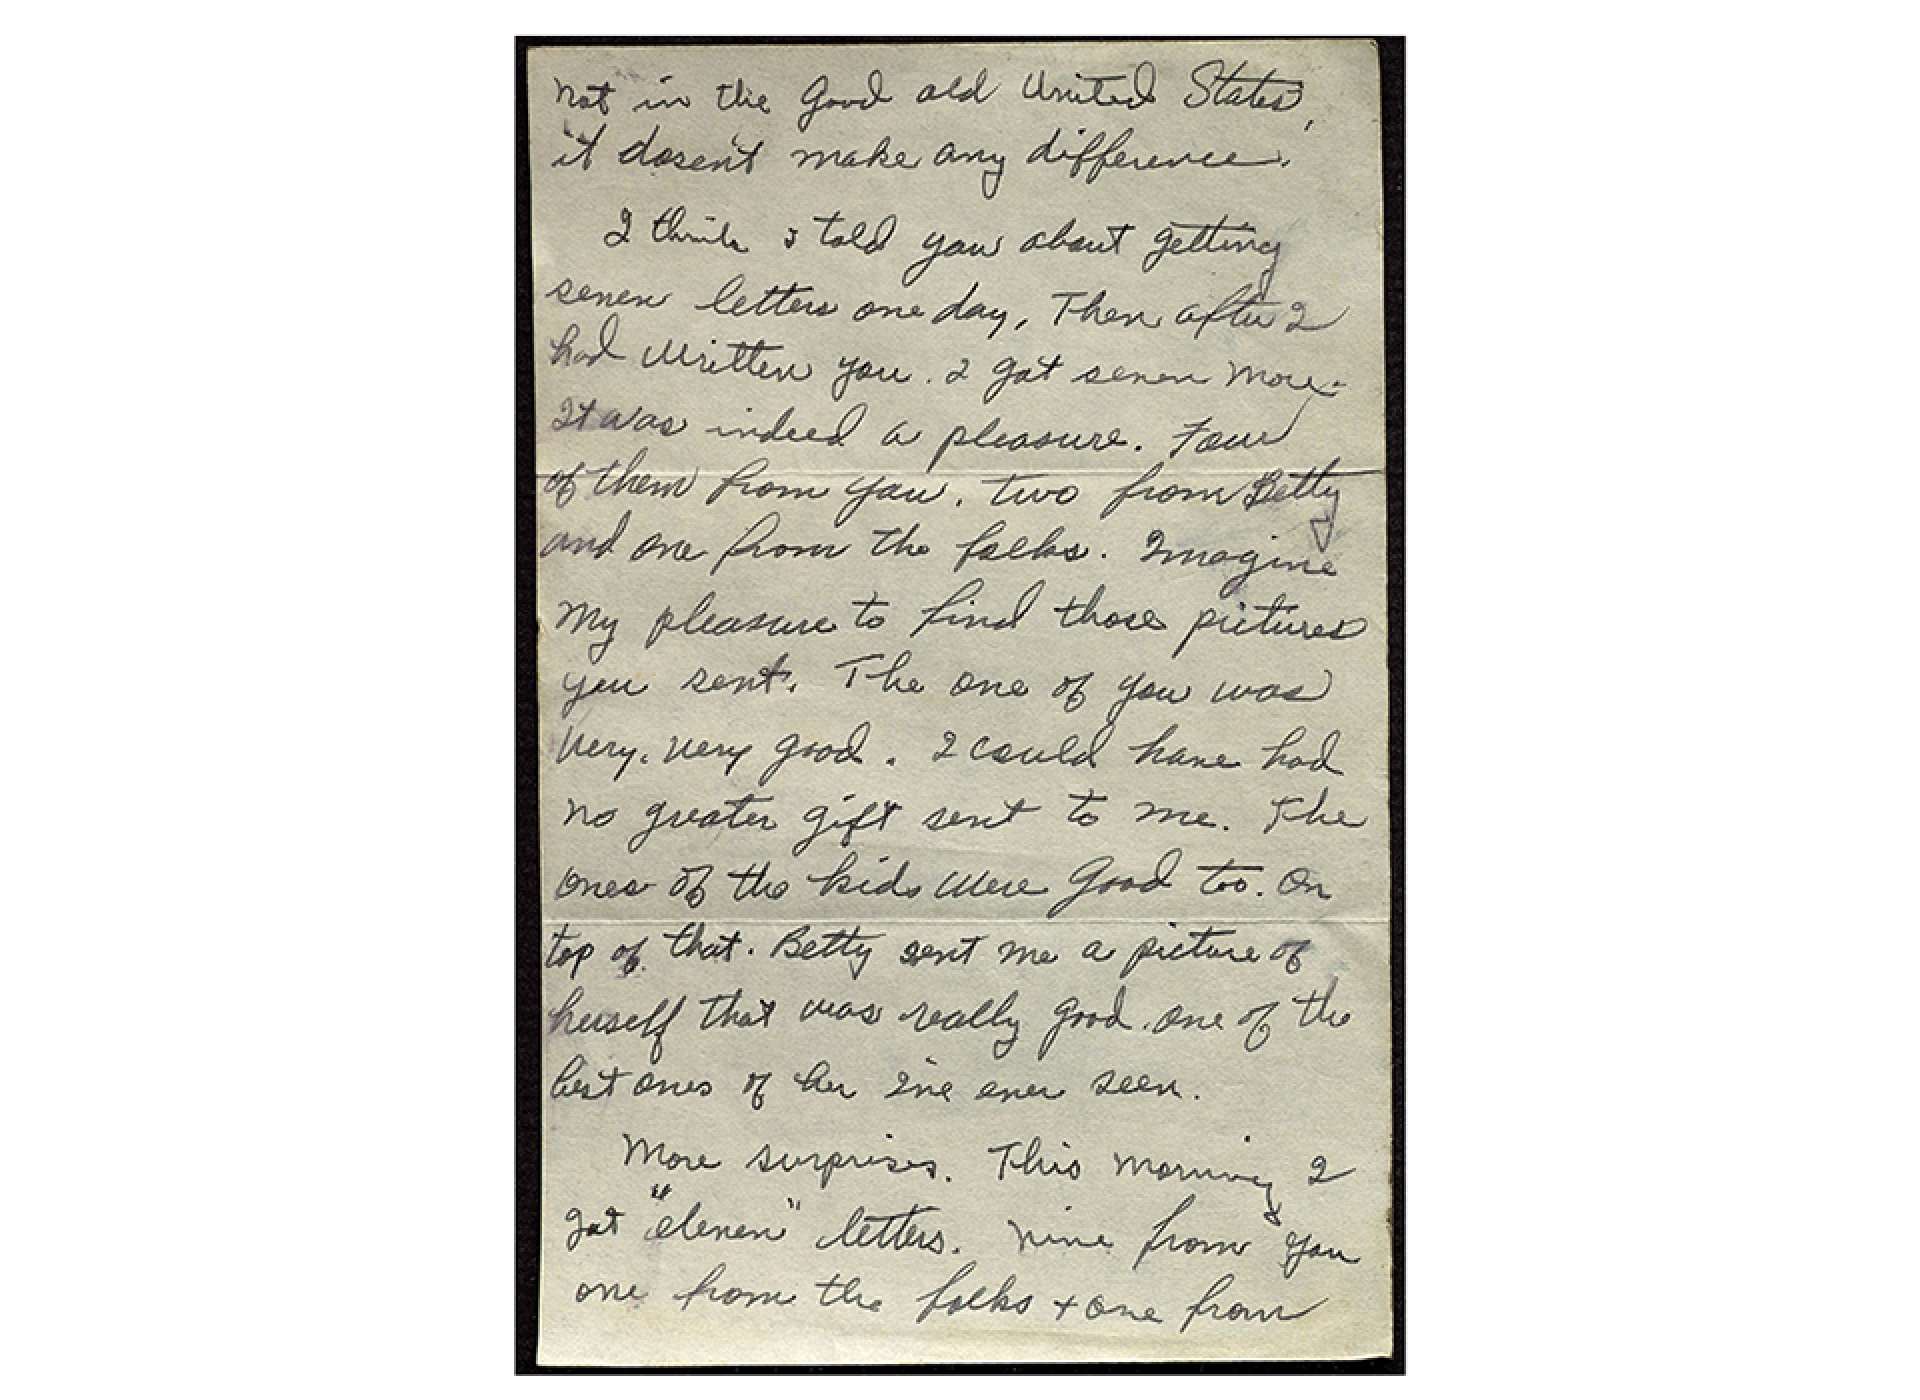 not in the Good old United States,
it dosen't make any difference.
I think I told you about getting
seven letters one day, Then after I
had written you. I got seven more.
It was indeed a pleasure. Four
of them from you, two from Betty
and one from the folks. Imagine
My pleasure to find those pictures
you sent. The one of you was
very, very good. I could have had
no greater gift sent to me. The
ones of the kids were Good too. On
top of that. Betty sent me a picture of
herself that was really good. One of the
best ones of her I've ever seen.
More surprises. This morning I
got "eleven" letters. Nine from you
one from the folks + one from